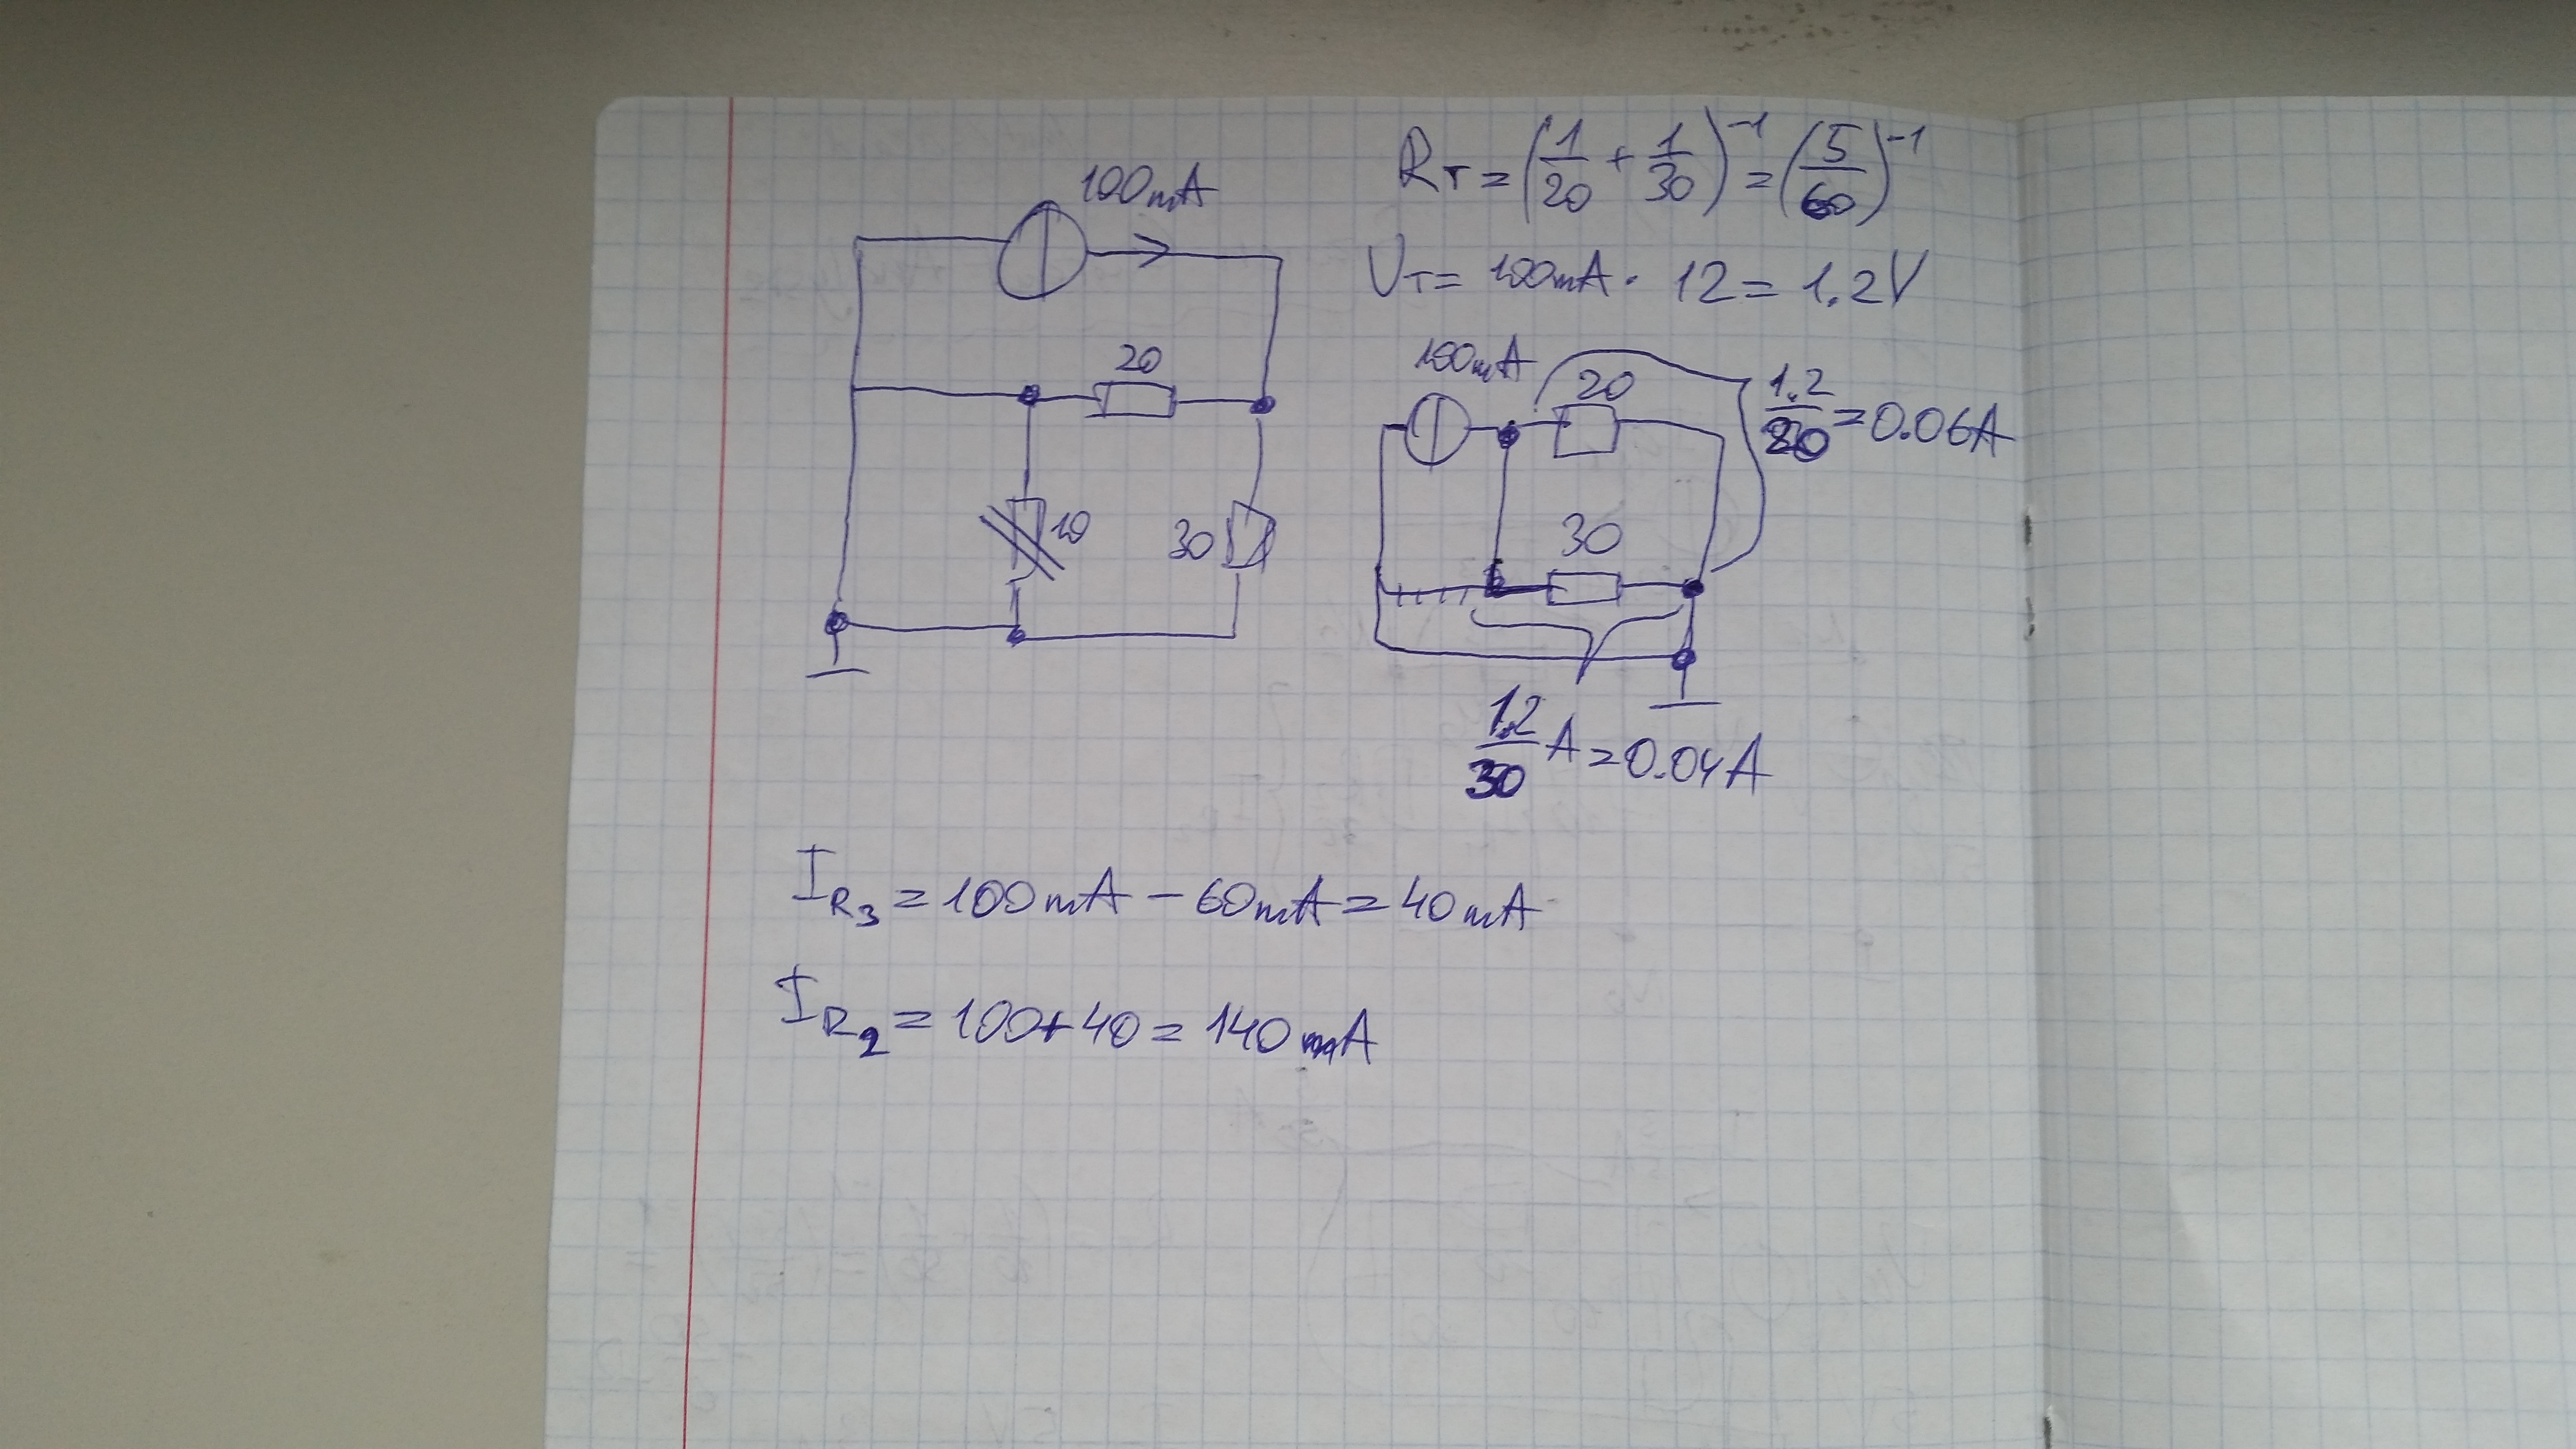 100mA
20
10
30
R_T = (1/20 + 1/30)^-1 = (5/60)^-1
U_T = 100mA · 12 = 1.2V
100mA
20
1.2/20 = 0.06A
30
1.2/30 A = 0.04A
I_R3 = 100mA - 60mA = 40mA
I_R2 = 100+40 = 140mA